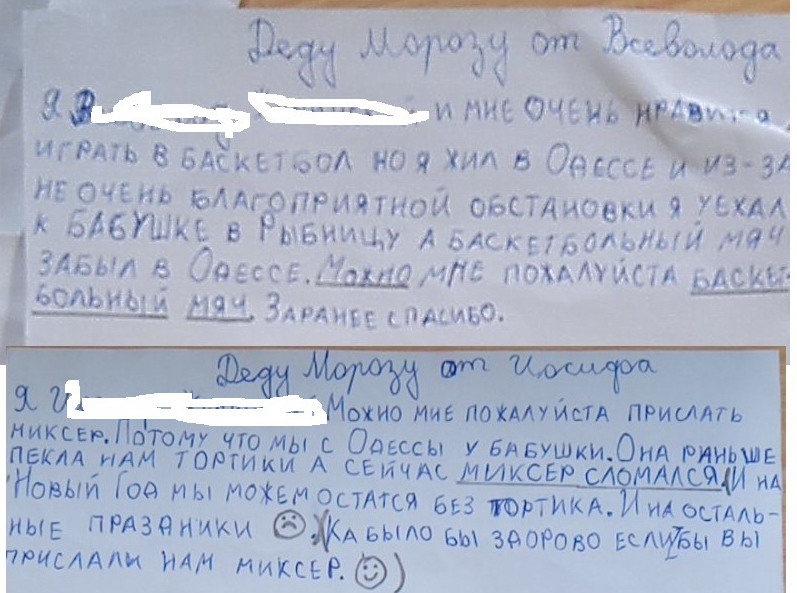 Деду Морозу от Всеволода
Я И МНЕ ОЧЕНЬ НРАВИТСЯ
ИГРАТЬ В БАСКЕТБОЛ НО Я ЖИЛ В ОДЕССЕ И ИЗ-ЗА
НЕ ОЧЕНЬ БЛАГОПРИЯТНОЙ ОБСТАНОВКИ Я УЕХАЛ
К БАБУШКЕ В РЫБНИЦУ А БАСКЕТБОЛЬНЫЙ МЯЧ
ЗАБЫЛ В ОДЕССЕ. МОЖНО МНЕ ПОЖАЛУЙСТА БАСКЕТ-
БОЛЬНЫЙ МЯЧ. ЗАРАНЕЕ СПАСИБО.
Деду Морозу от Иосифа
Я И МОЖНО МНЕ ПОЖАЛУЙСТА ПРИСЛАТЬ
МИКСЕР. ПОТОМУ ЧТО МЫ С ОДЕССЫ У БАБУШКИ. ОНА РАНЬШЕ
ПЕКЛА НАМ ТОРТИКИ А СЕЙЧАС МИКСЕР СЛОМАЛСЯ. И НА
НОВЫЙ ГОД МЫ МОЖЕМ ОСТАТСЯ БЕЗ ТОРТИКА. И НА ОСТАЛЬ-
НЫЕ ПРАЗДНИКИ ☹. КА БЫЛО БЫ ЗДОРОВО ЕСЛИ БЫ ВЫ
ПРИСЛАЛИ НАМ МИКСЕР. ☺)